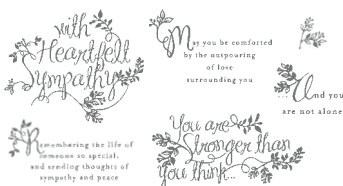 with
Heartfelt
Sympathy
May you be comforted
by the outpouring
of love
surrounding you
...And you
are not alone
Remembering the life of
someone so special,
and sending thoughts of
sympathy and peace
You are
Stronger than
you think...